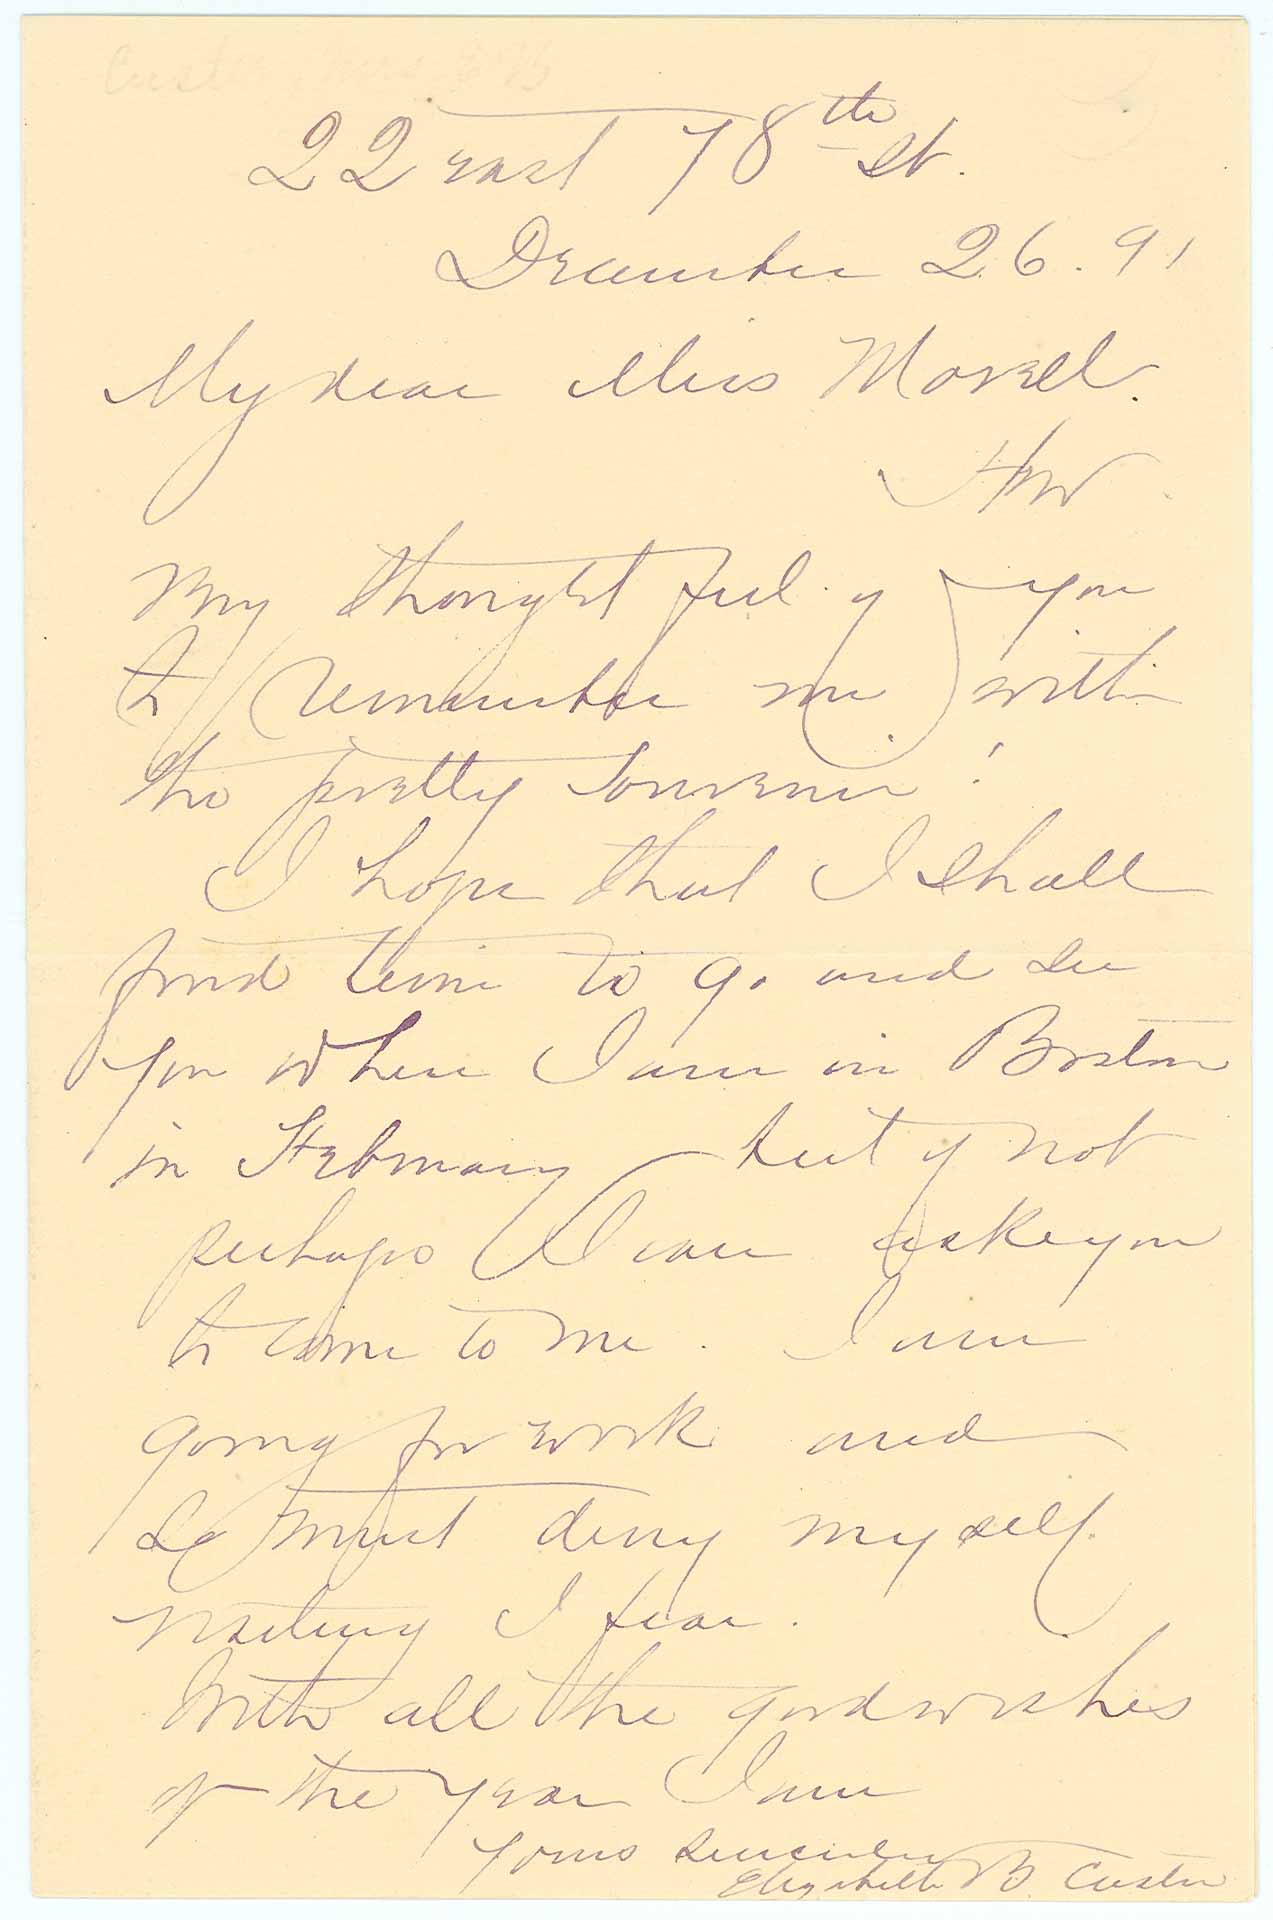 Custer, Mrs. E B
22 East 78th St.
December 26. 91
My dear Miss
How
very thoughtful of you
to remember me with
the pretty souvenir!
I hope that I shall
find time to go and see
you when I am in Boston
in February but if not
perhaps I can ask you
to come to me. I am
going for work and
so must deny myself
visiting I fear.
With all the good wishes
of the year I am
Yours sincerely
Elizabeth B. Custer